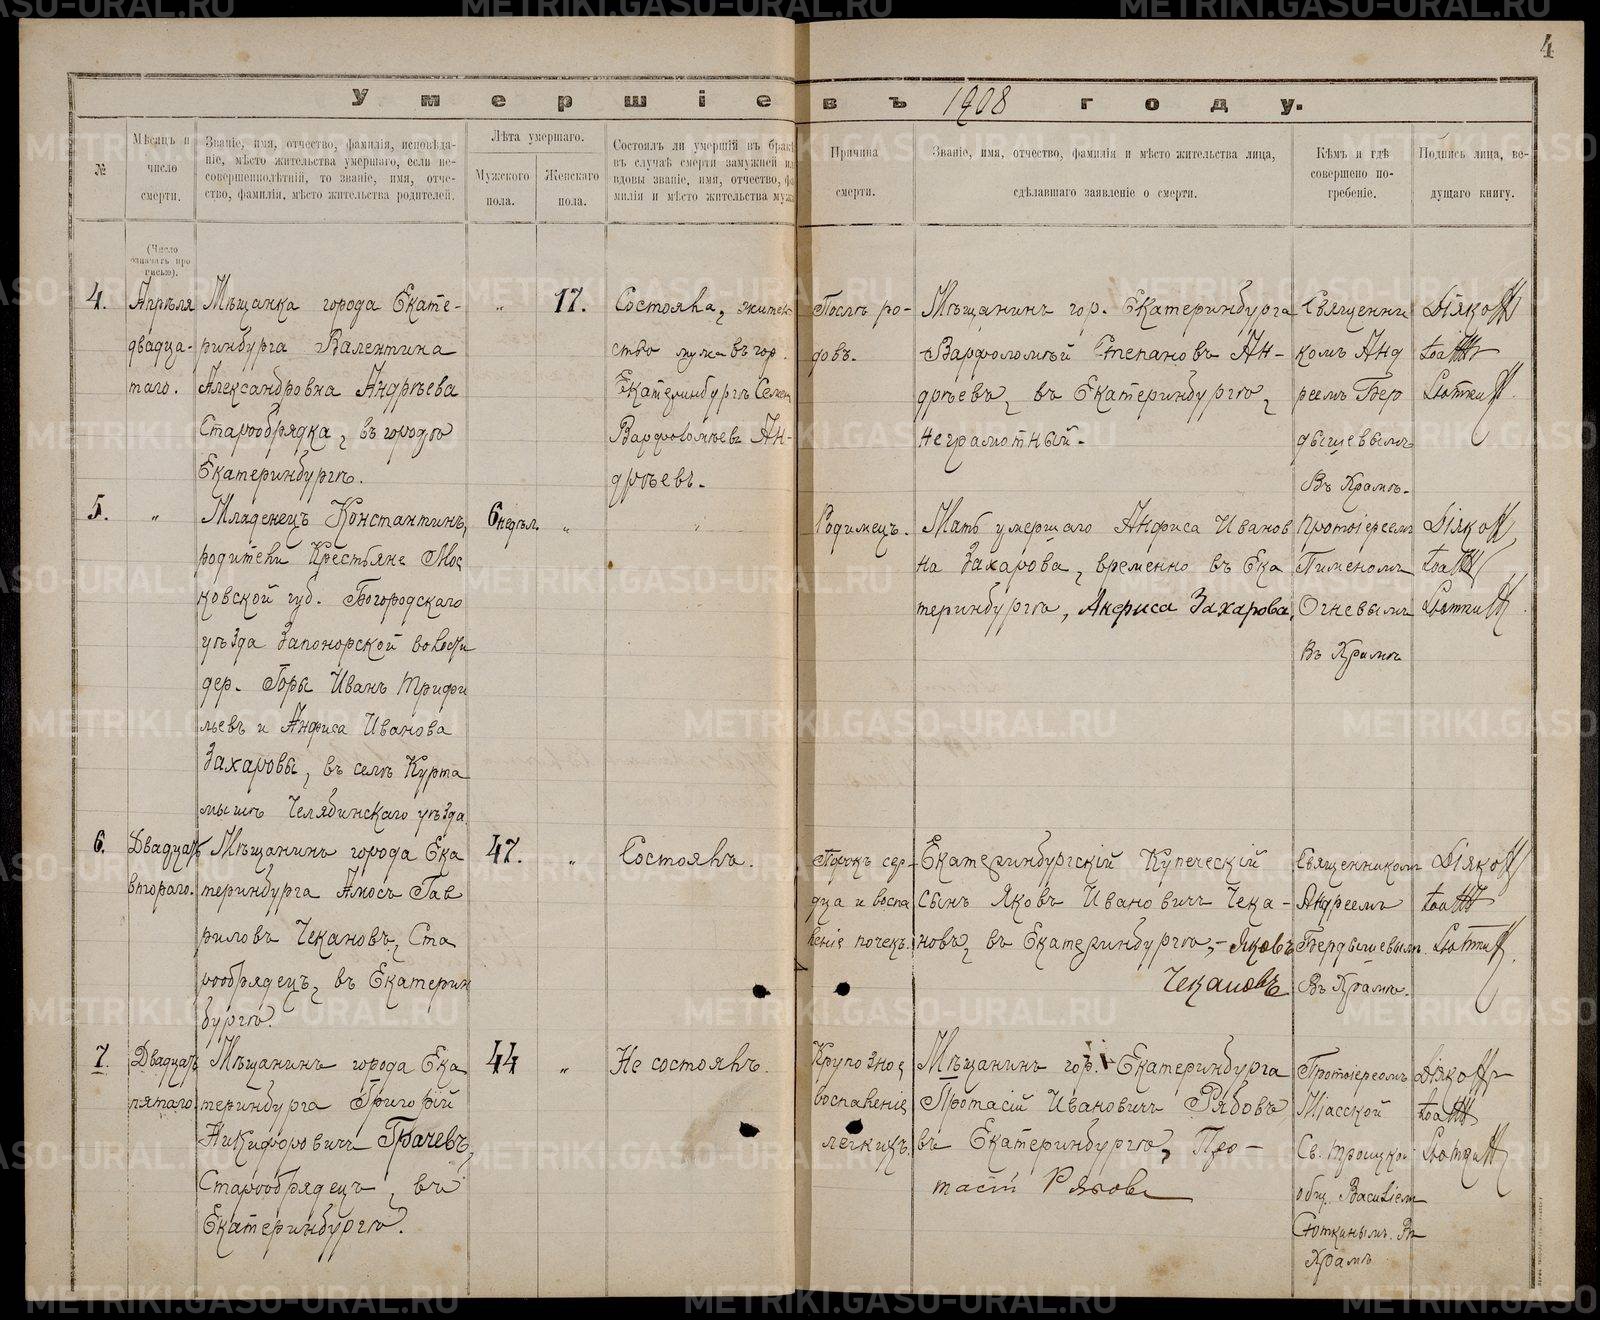 4
Умершіе въ 1908 году.
№
Мѣсяцъ и
число
смерти.
Званіе, имя, отчество, фамилія, исповѣда-
ніе, мѣсто жительства умершаго, если не-
совершеннолѣтній, то званіе, имя, отче-
ство, фамилія, мѣсто жительства родителей.
Лѣта умершаго.
Мужского
пола.
Женскаго
пола.
Состоялъ ли умершій въ бракѣ
въ случаѣ смерти замужней и
вдовы званіе, имя, отчество, фа
милія и мѣсто жительства муж
Причина
смерти.
Званіе, имя, отчество, фамилія и мѣсто жительства лица,
сдѣлавшаго заявленіе о смерти.
Кѣмъ и гдѣ
совершено по-
гребеніе.
Подпись лица, ве-
дущаго книгу.
(Число
означать про
писью).
4.
Апрѣля
двадца-
таго.
Мѣщанка города Екате-
ринбурга Валентина
Александровна Андрѣева
Старообрядка, въ городѣ
Екатеринбургѣ.
"
17.
Состояла, житель
ство мужа въ гор.
Екатеринбургѣ Семен
Варфоломѣевъ Ан-
дрѣевъ.
Послѣ ро-
довъ.
Мѣщанинъ гор. Екатеринбурга
Варфоломѣй Степановъ Ан-
дрѣевъ, въ Екатеринбургѣ,
неграмотный.
Священни
комъ Анд
реемъ Бер
дышевымъ
Въ Храмѣ.
5.
"
Младенецъ Константинъ,
родители Крестьяне Мос
ковской губ. Богородскаго
уѣзда Запонорской волости
дер. Горы Иванъ Трифи
льевъ и Анфиса Иванова
Захаровы, въ селѣ Курта
мышѣ Челябинскаго уѣзда.
6 недѣл.
"
"
Родимецъ.
Мать умершаго Анфиса Иванов
на Захарова, временно въ Ека
теринбургѣ, Анфиса Захарова.
Протоіереемъ
Пименомъ
Огневымъ
Въ Храмѣ
6.
Двадцать
втораго.
Мѣщанинъ города Ека
теринбурга Амосъ Гав
риловъ Чекановъ, Ста
рообрядецъ, въ Екатерин
бургѣ.
47.
"
Состоялъ.
Порокъ сер-
дца и воспа
леніе почекъ.
Екатеринбургскій Купеческій
Сынъ Яковъ Ивановичъ Чека-
новъ, въ Екатеринбургѣ,- Яковъ
Чекановъ
Священникомъ
Андреемъ
Бердышевымъ.
Въ Храмѣ.
7.
Двадцать
пятаго
Мѣщанинъ города Ека
теринбурга Григорій
Никифоровичъ Грачевъ,
Старообрядецъ, въ
Екатеринбургѣ.
44
"
Не состоялъ.
Крупозное
воспаленіе
легкихъ.
Мѣщанинъ гор. Екатеринбурга
Протасій Ивановичъ Рябовъ
въ Екатеринбургѣ, Про-
тасій Рябовъ
Протоіереемъ
Міасской
Св. Троицкой
общ. Василіем
Сюткинымъ. Въ
Храмѣ
METRIKI.GASO-URAL.RU